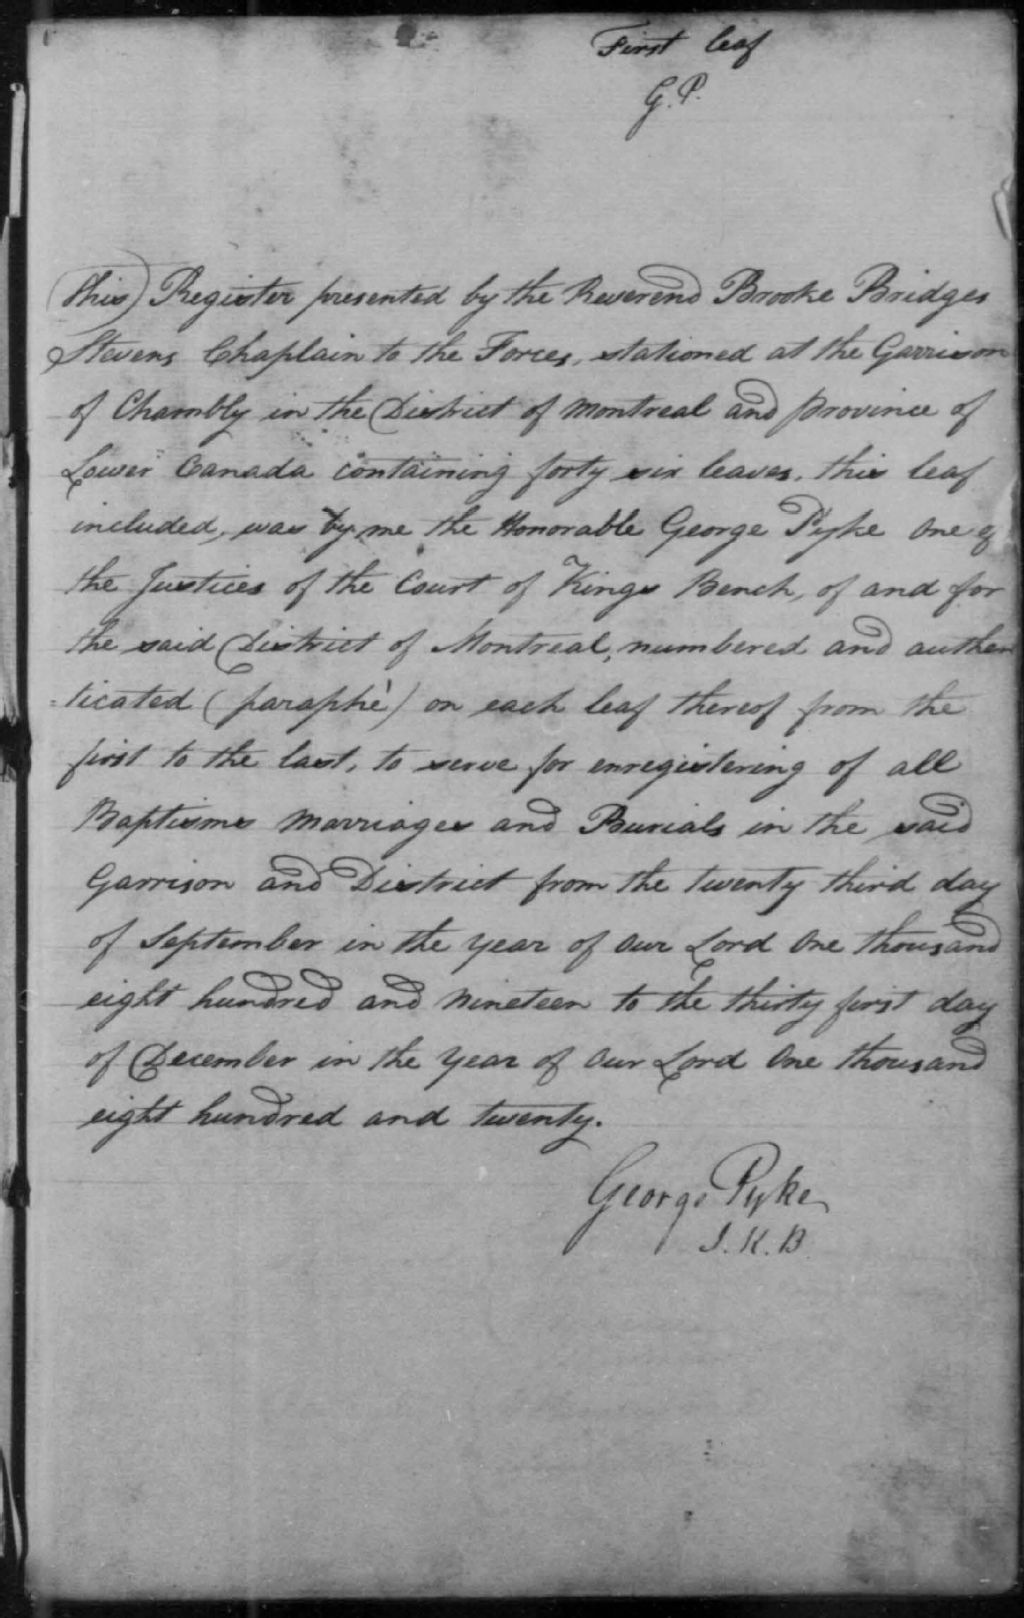 First leaf
G. P.
This Register presented by the Reverend Brooke Bridges
Stevens Chaplain to the Forces, stationed at the Garrison
of Chambly in the District of Montreal and province of
Lower Canada containing forty six leaves, this leaf
included, was by me the Honorable George Pyke One of
the Justices of the Court of Kings Bench, of and for
the said District of Montreal, numbered and authen
=ticated (paraphé) on each leaf thereof from the
first to the last, to serve for enregistering of all
Baptisms Marriages and Burials in the said
Garrison and District from the twenty third day
of September in the year of Our Lord One thousand
eight hundred and nineteen to the thirty first day
of December in the year of Our Lord One thousand
eight hundred and twenty.
George Pyke
J. K. B.